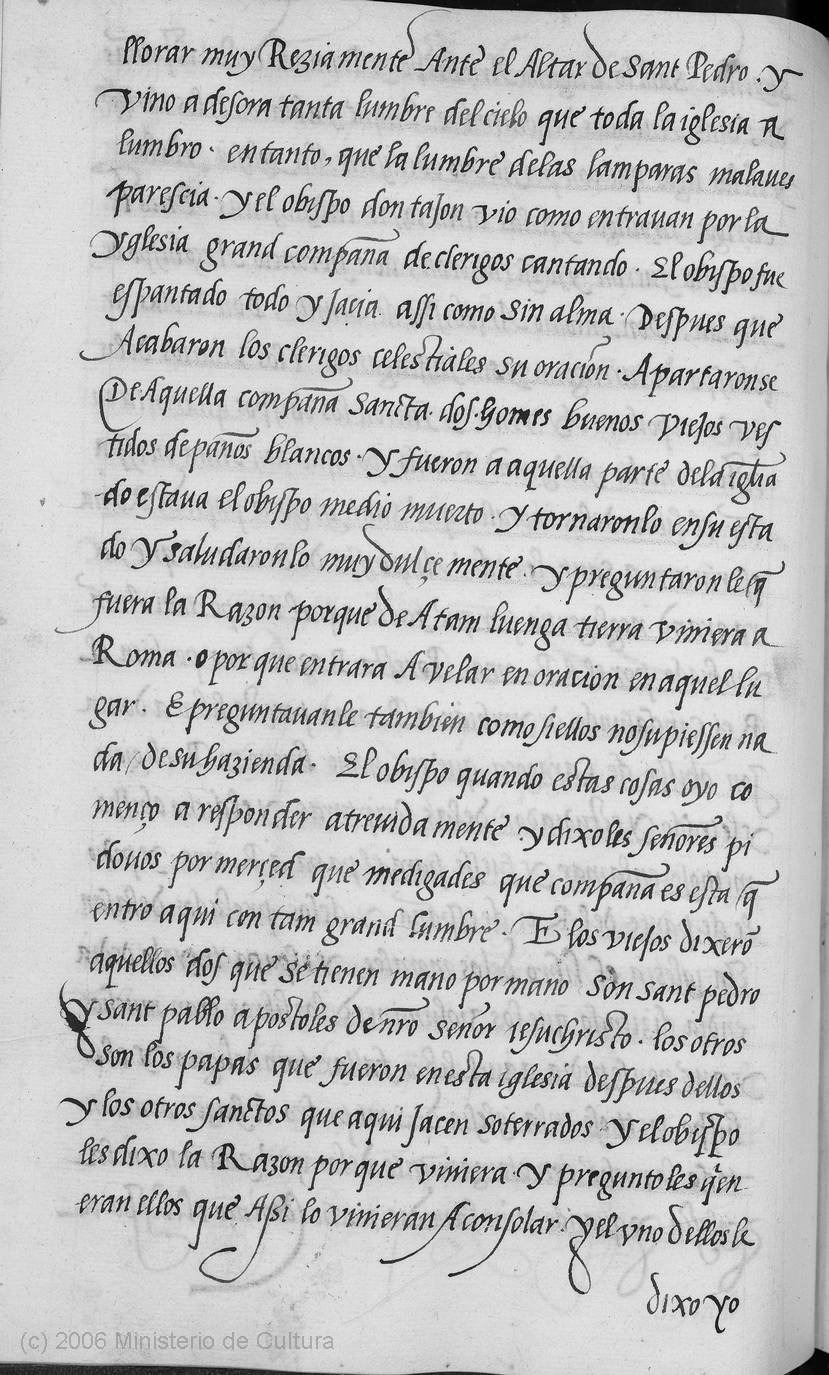 llorar muy Reziamente Ante el Altar de Sant Pedro . y
vino a desora tanta lumbre del cielo que toda la iglesia a
lumbro . en tanto, que la lumbre delas lamparas malaues
parescia . y el obispo don tajon vio como entravan por la
yglesia grand compaña de clerigos cantando . El obispo fue
espantado todo y jaçia assi como sin alma . Despues que
Acabaron los clerigos celestiales su oraçion . Apartaronse
De Aquella compaña Sancta . dos . homes buenos viejos ves
tidos de paños blancos . y fueron a aquella parte dela iglīa
do estaua el obispo medio muerto . y tornaronlo en su esta
do y saludaronlo muy dulçe mente . y preguntaronle q̄
fuera la Razon porque de Atam luenga tierra viniera a
Roma . o por que entrara A velar en oracion en aquel lu
gar . E preguntauanle tambien como si ellos no supiessen na
da / de su hazienda . El obispo quando estas cosas oyo co
menço a responder atrevida mente y dixoles señores pi
dovos por merçed que me digades que compaña es esta q̄
entro aqui con tam grand lumbre . E los viejos dixerō
aquellos dos que se tienen mano por mano son sant pedro
y sant pablo apostoles de nr̄o señor iesuchristo . los otros
son los papas que fueron en esta iglesia despues dellos
y los otros sanctos que aqui Jacen soterrados . y el obispo
les dixo la Razon por que viniera . y preguntoles q̄en
eran ellos que Assi lo vinieran A consolar . y el vno dellos le
dixo yo
(c) 2006 Ministerio de Cultura